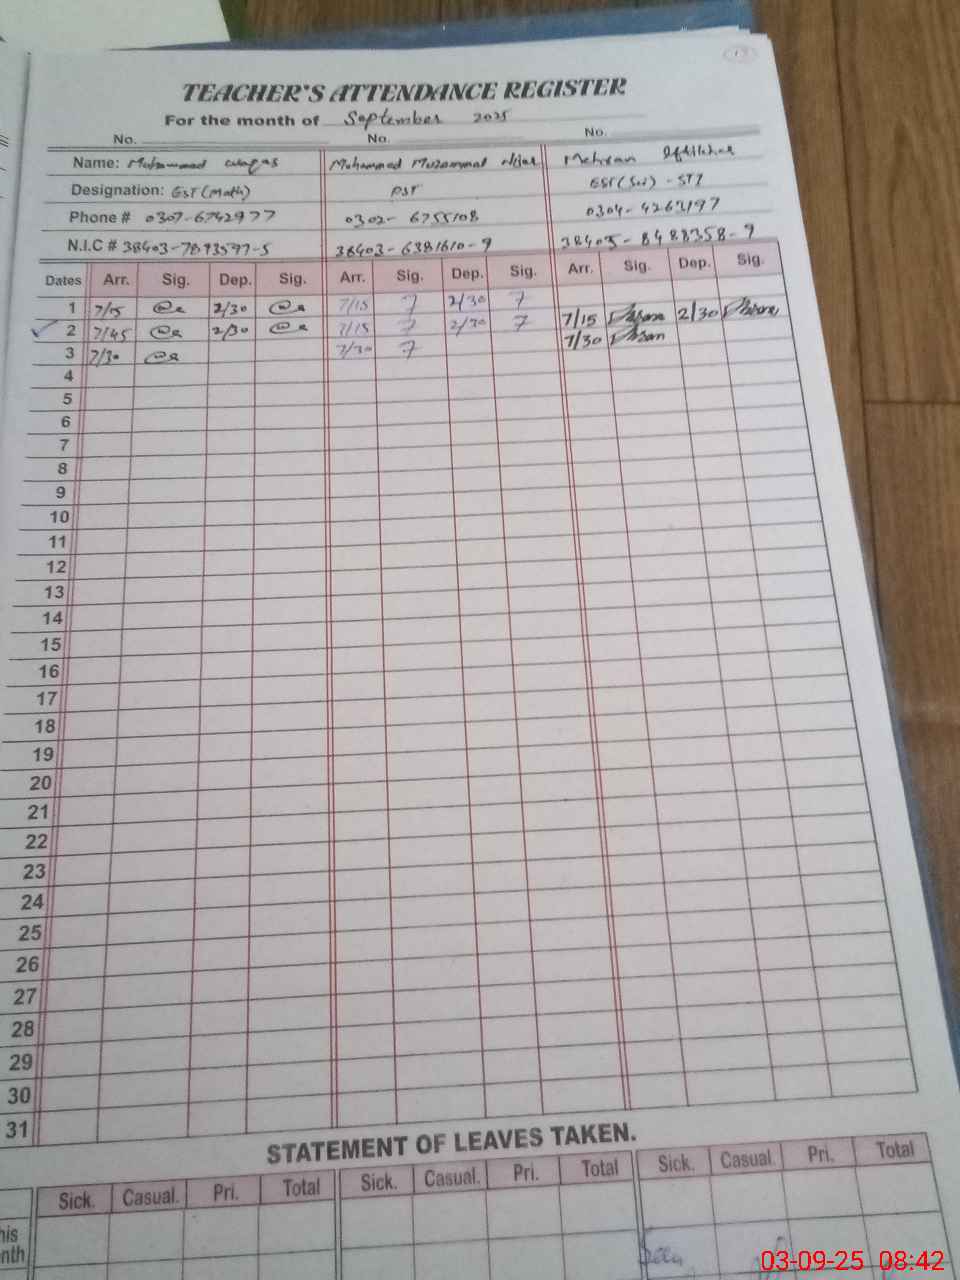 TEACHER'S ATTENDANCE REGISTER
For the month of September 2025
No. No. No.
Name: Muhammad Waqas Muhammad Muzammal Mehran Iftikhar
Designation: EST (Math) PST EST (Sci) - STI
Phone # 0307-6742977 0302-6755108 0304-4263197
N.I.C # 38403-7893597-5 38403-6381610-9 38405-8488358-9
Dates Arr. Sig. Dep. Sig. Arr. Sig. Dep. Sig. Arr. Sig. Dep. Sig.
1 7/15 2/30 7/15 2/30
2 7/45 2/30 7/15 2/30 7/15 2/30
3 7/30 7/30 7/30
4
5
6
7
8
9
10
11
12
13
14
15
16
17
18
19
20
21
22
23
24
25
26
27
28
29
30
31
STATEMENT OF LEAVES TAKEN.
Sick. Casual. Pri. Total Sick. Casual. Pri. Total Sick. Casual. Pri. Total
03-09-25 08:42